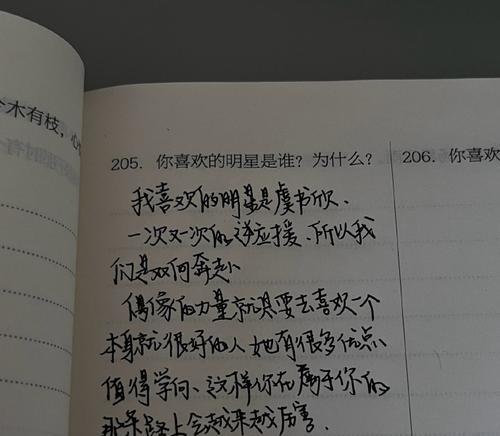 木有枝，心
205. 你喜欢的明星是谁？为什么？
206. 你喜欢
我喜欢的明星是虞书欣、
一次又一次的逆应援、所以我
们是双向奔赴
偶像的力量就是要去喜欢一个
本身就很好的人她有很多优点
值得学向、这样你在属于你的
那条路上会越来越厉害.